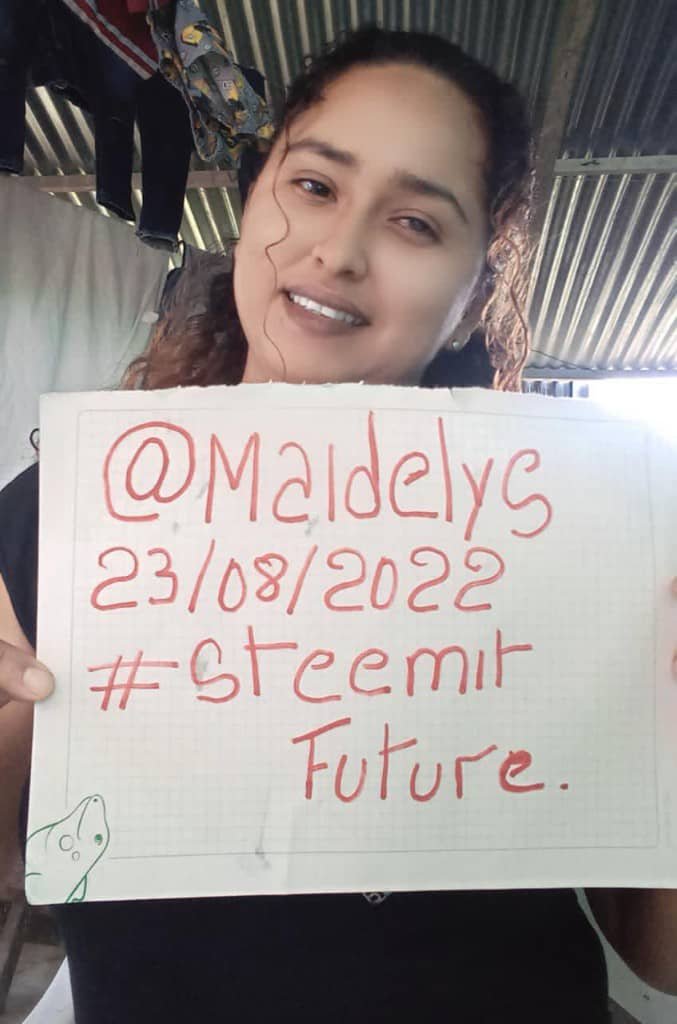 @Maidelys
23/08/2022
#Steemit
Future.